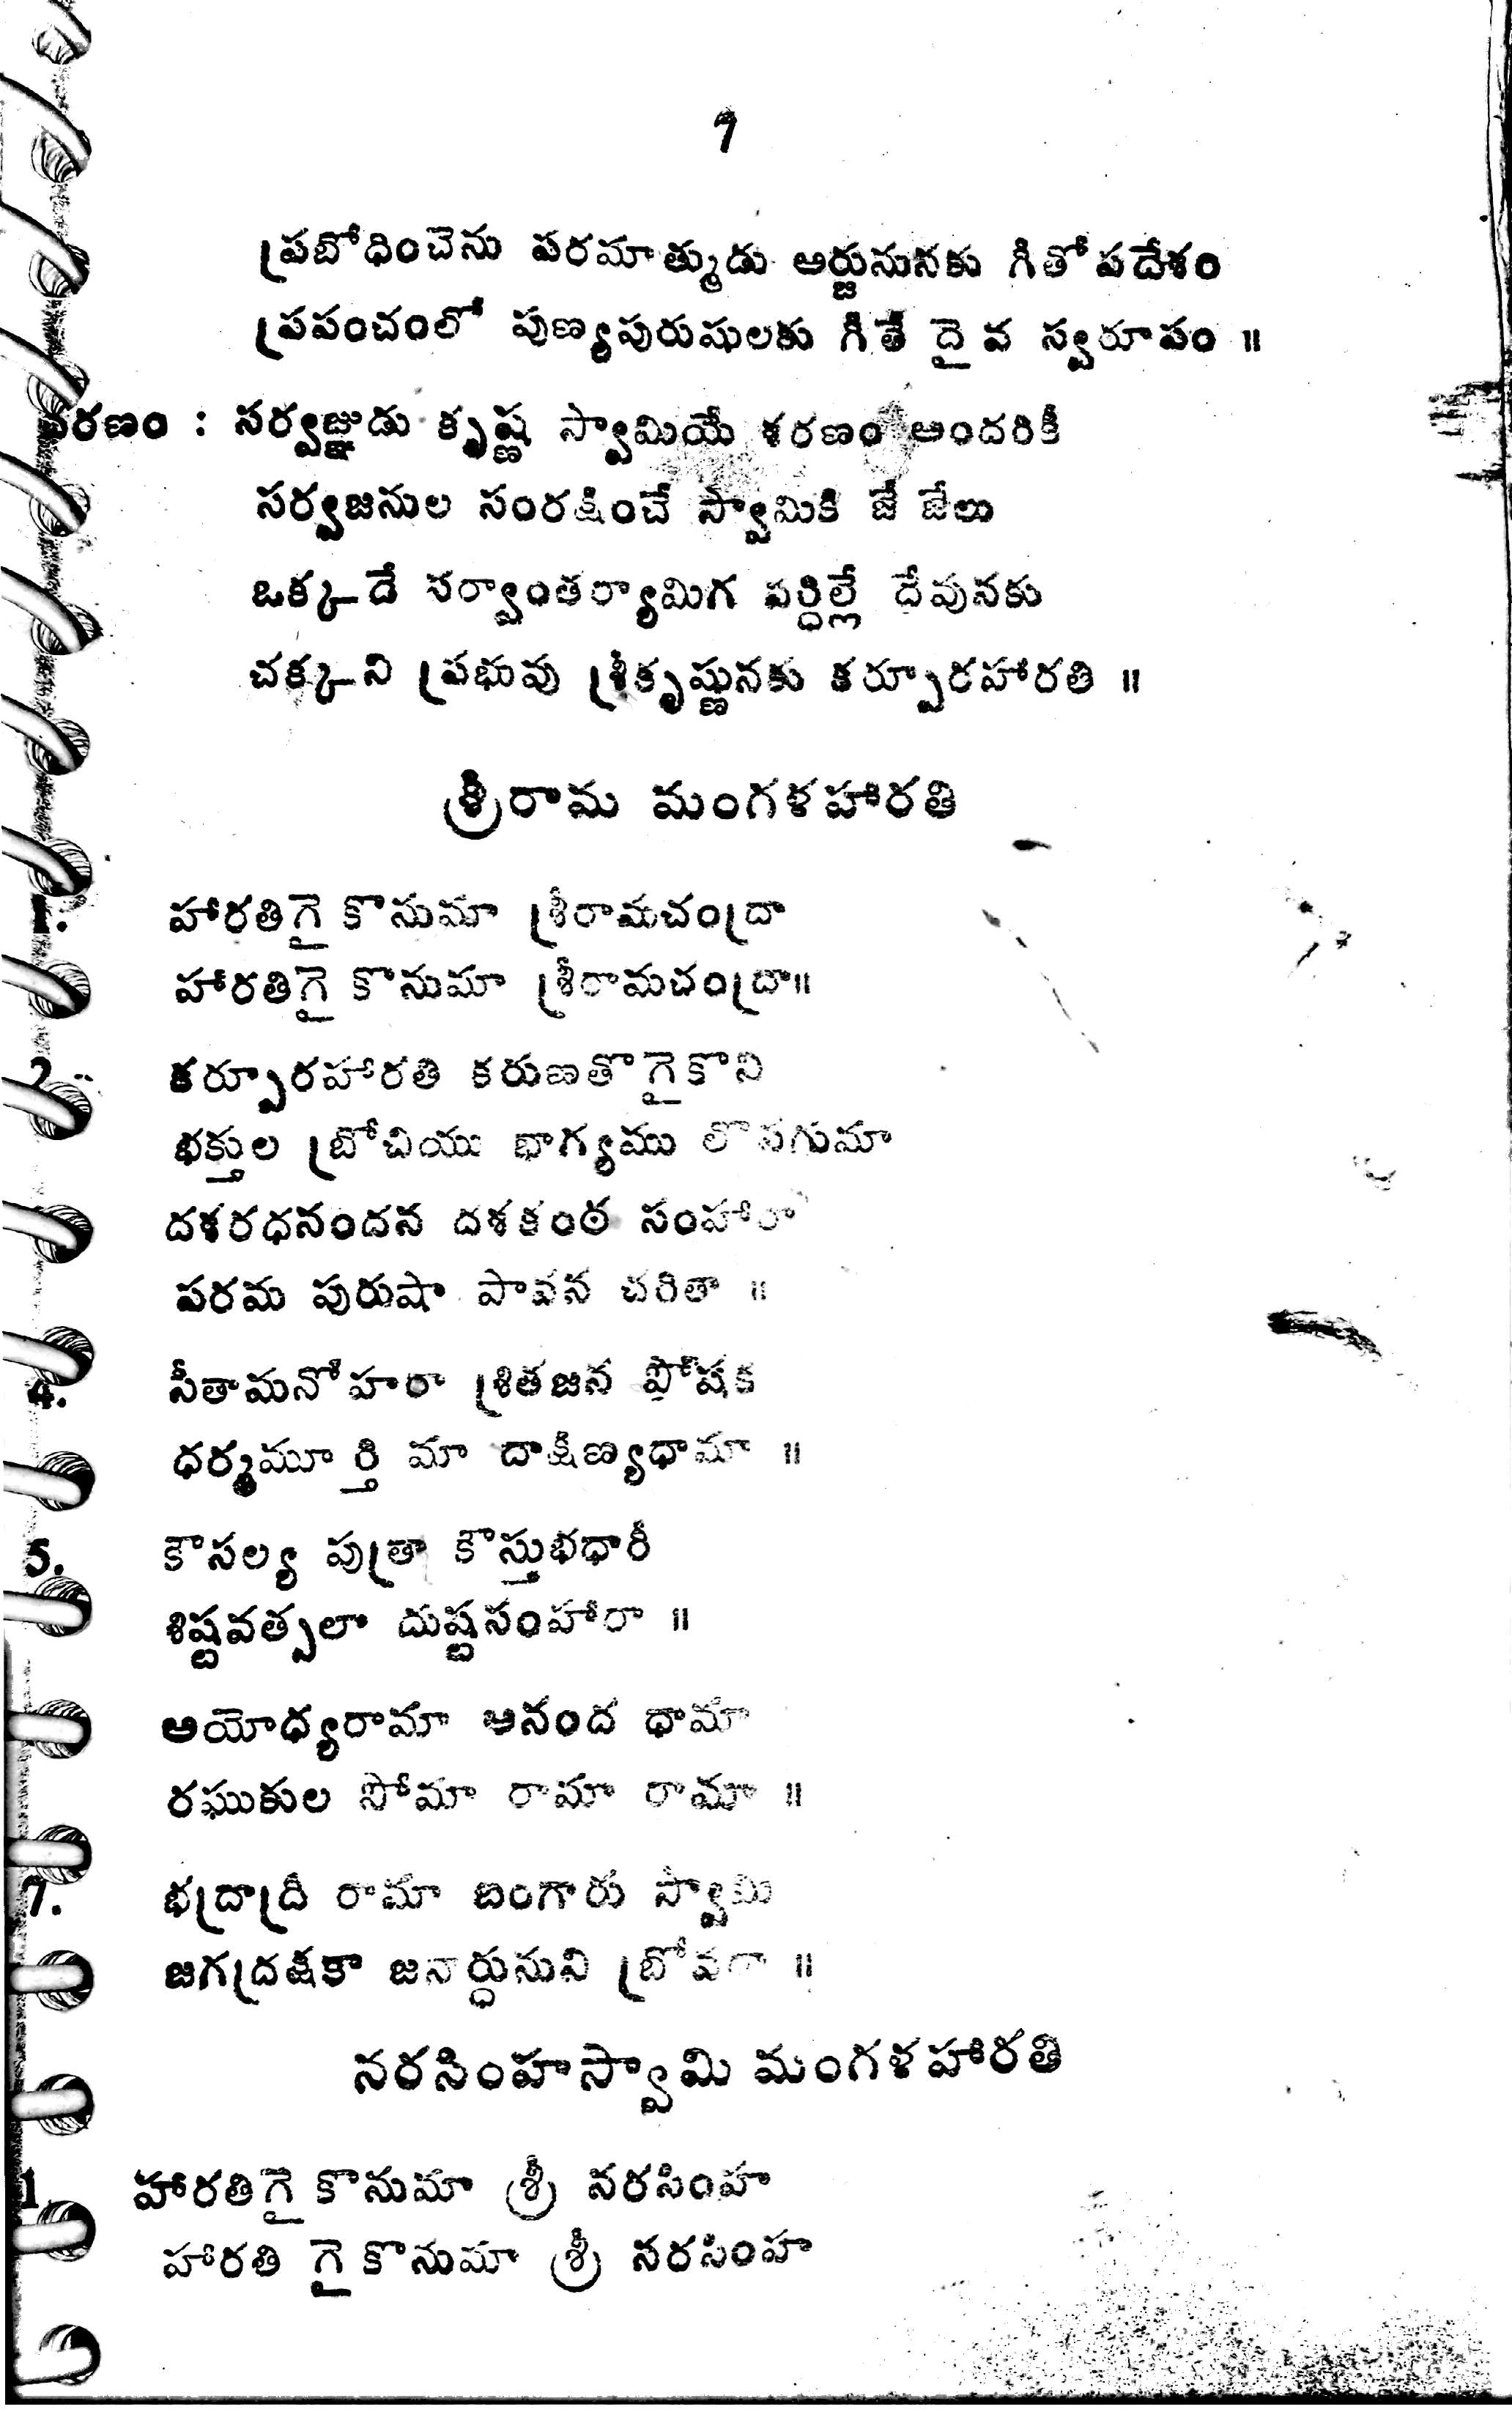 7
ప్రబోధించెను పరమాత్ముడు అర్జునునకు గీతోపదేశం
ప్రపంచంలో పుణ్యపురుషులకు గీతే దైవ స్వరూపం ॥
చరణం : సర్వజ్ఞుడు కృష్ణ స్వామియే శరణం అందరికీ
సర్వజనుల సంరక్షించే స్వామికి జే జేలు
ఒక్కడే సర్వాంతర్యామిగ వర్ధిల్లే దేవునకు
చక్కని ప్రభువు శ్రీకృష్ణునకు కర్పూరహారతి ॥
శ్రీరామ మంగళహారతి
1. హారతిగై కొనుమా శ్రీరామచంద్రా
హారతిగై కొనుమా శ్రీరామచంద్రా॥
2. కర్పూరహారతి కరుణతొగైకొని
భక్తుల బ్రోచియు భాగ్యము లొసగుమా
దశరధనందన దశకంఠ సంహారా
పరమ పురుషా పావన చరితా ॥
4. సీతామనోహరా శ్రితజన పోషక
ధర్మమూర్తి మా దాక్షిణ్యధామా ॥
5. కౌసల్య పుత్రా కౌస్తుభధారీ
శిష్టవత్సలా దుష్టసంహారా ॥
అయోధ్యరామా ఆనంద ధామా
రఘుకుల సోమా రామా రామా ॥
7. భద్రాద్రీ రామా బంగారు స్వామి
జగద్రక్షకా జనార్ధునుని బ్రోవగా ॥
నరసింహస్వామి మంగళహారతి
1. హారతిగై కొనుమా శ్రీ నరసింహ
హారతి గై కొనుమా శ్రీ నరసింహ